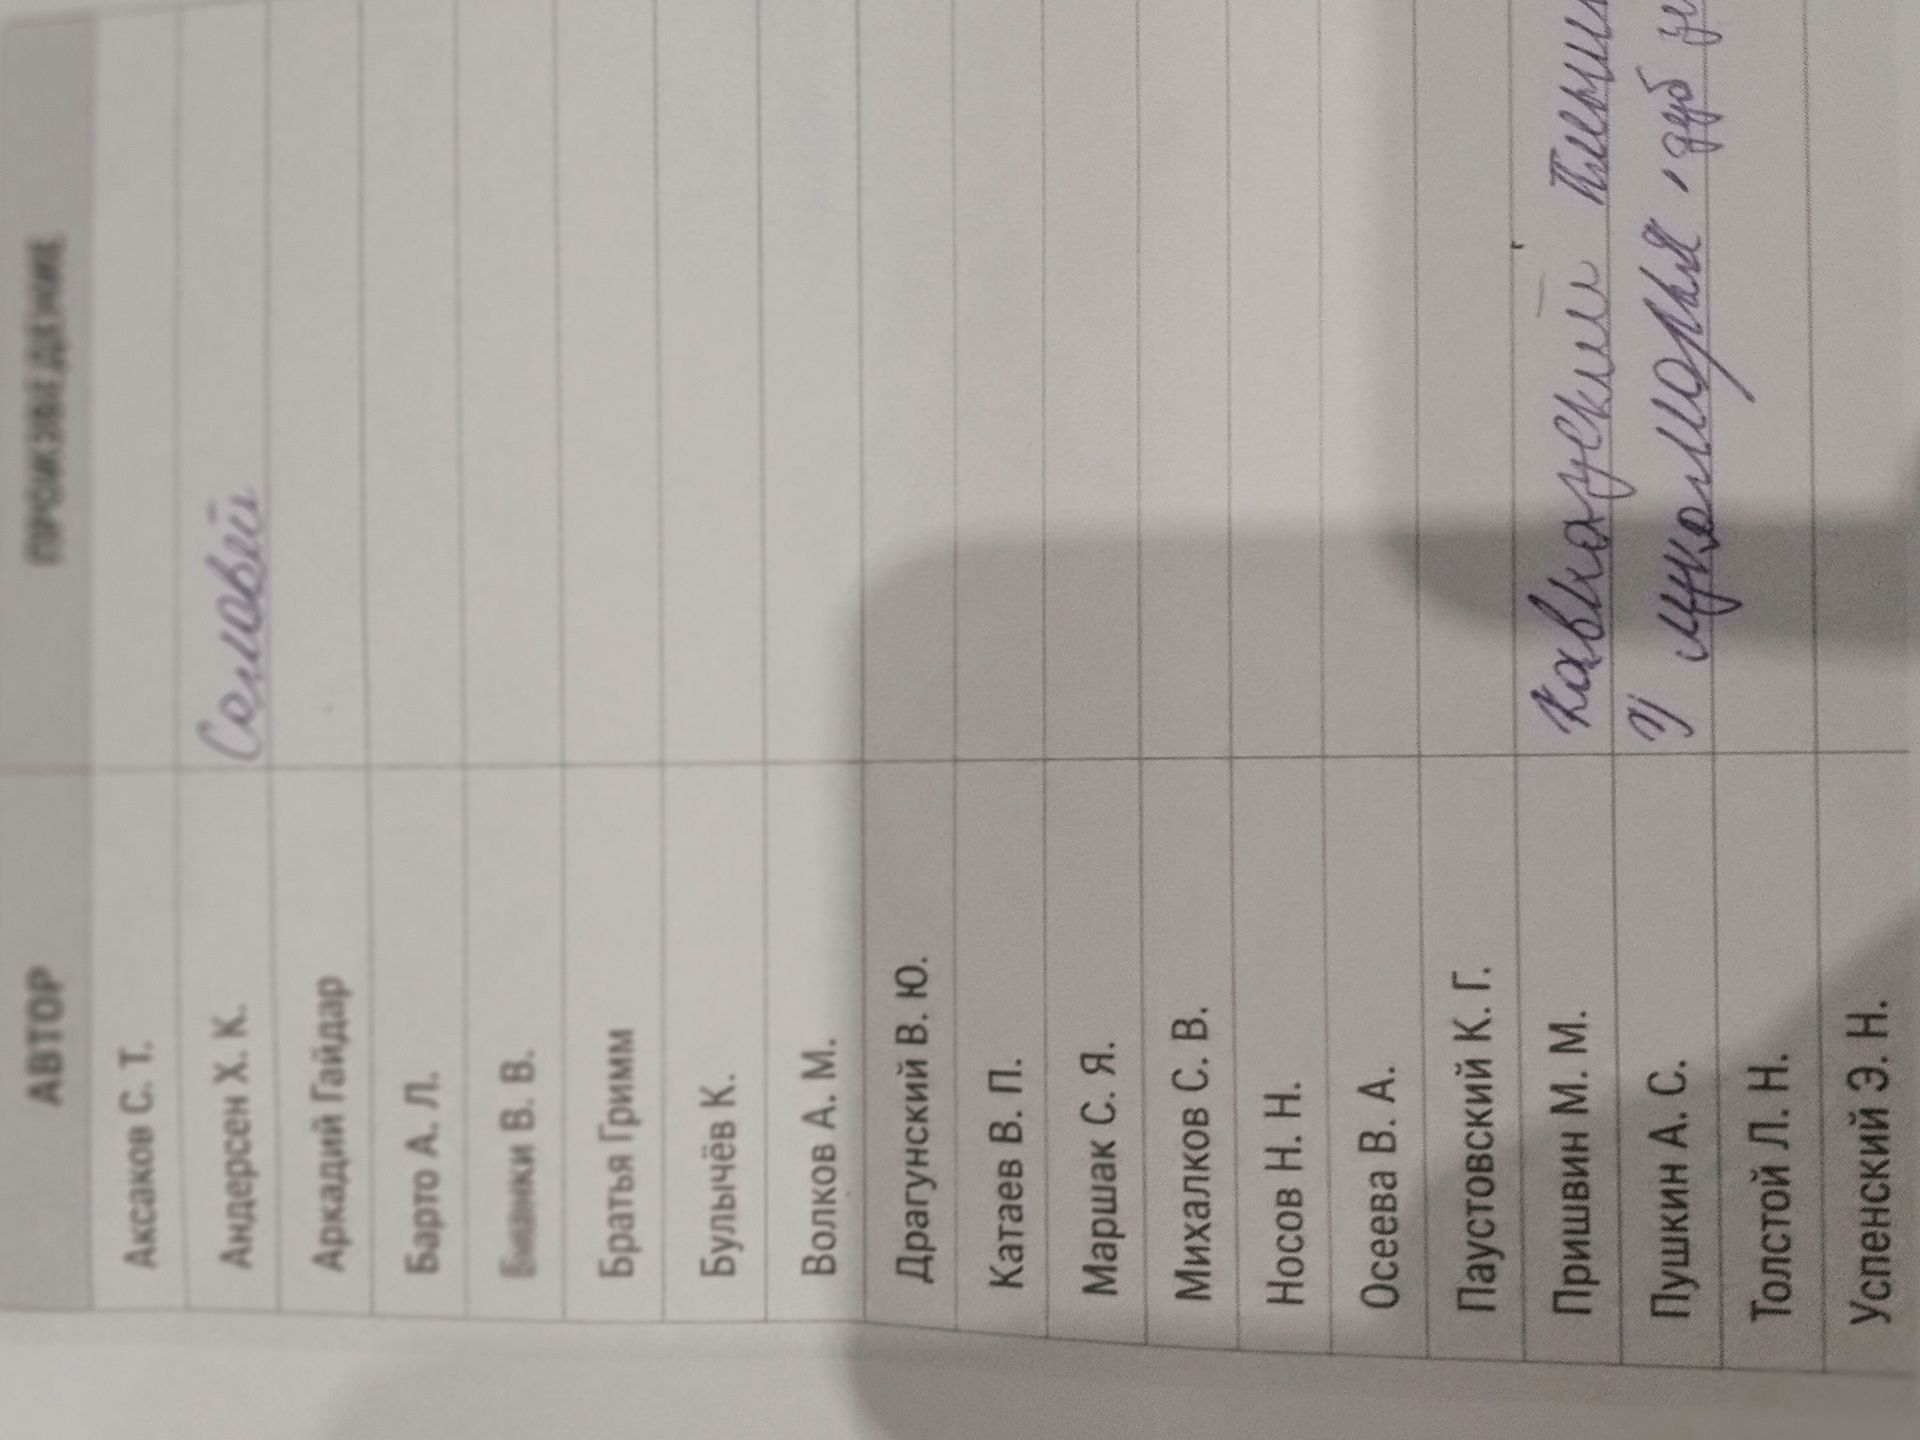 АВТОР ПРОИЗВЕДЕНИЕ
Аксаков С. Т.
Андерсен Х. К. Соловей
Аркадий Гайдар
Барто А. Л.
Бианки В. В.
Братья Гримм
Булычёв К.
Волков А. М.
Драгунский В. Ю.
Катаев В. П.
Маршак С. Я.
Михалков С. В.
Носов Н. Н.
Осеева В. А.
Паустовский К. Г.
Пришвин М. М. Кавказский
Пушкин А. С. дуб
Толстой Л. Н.
Успенский Э. Н.